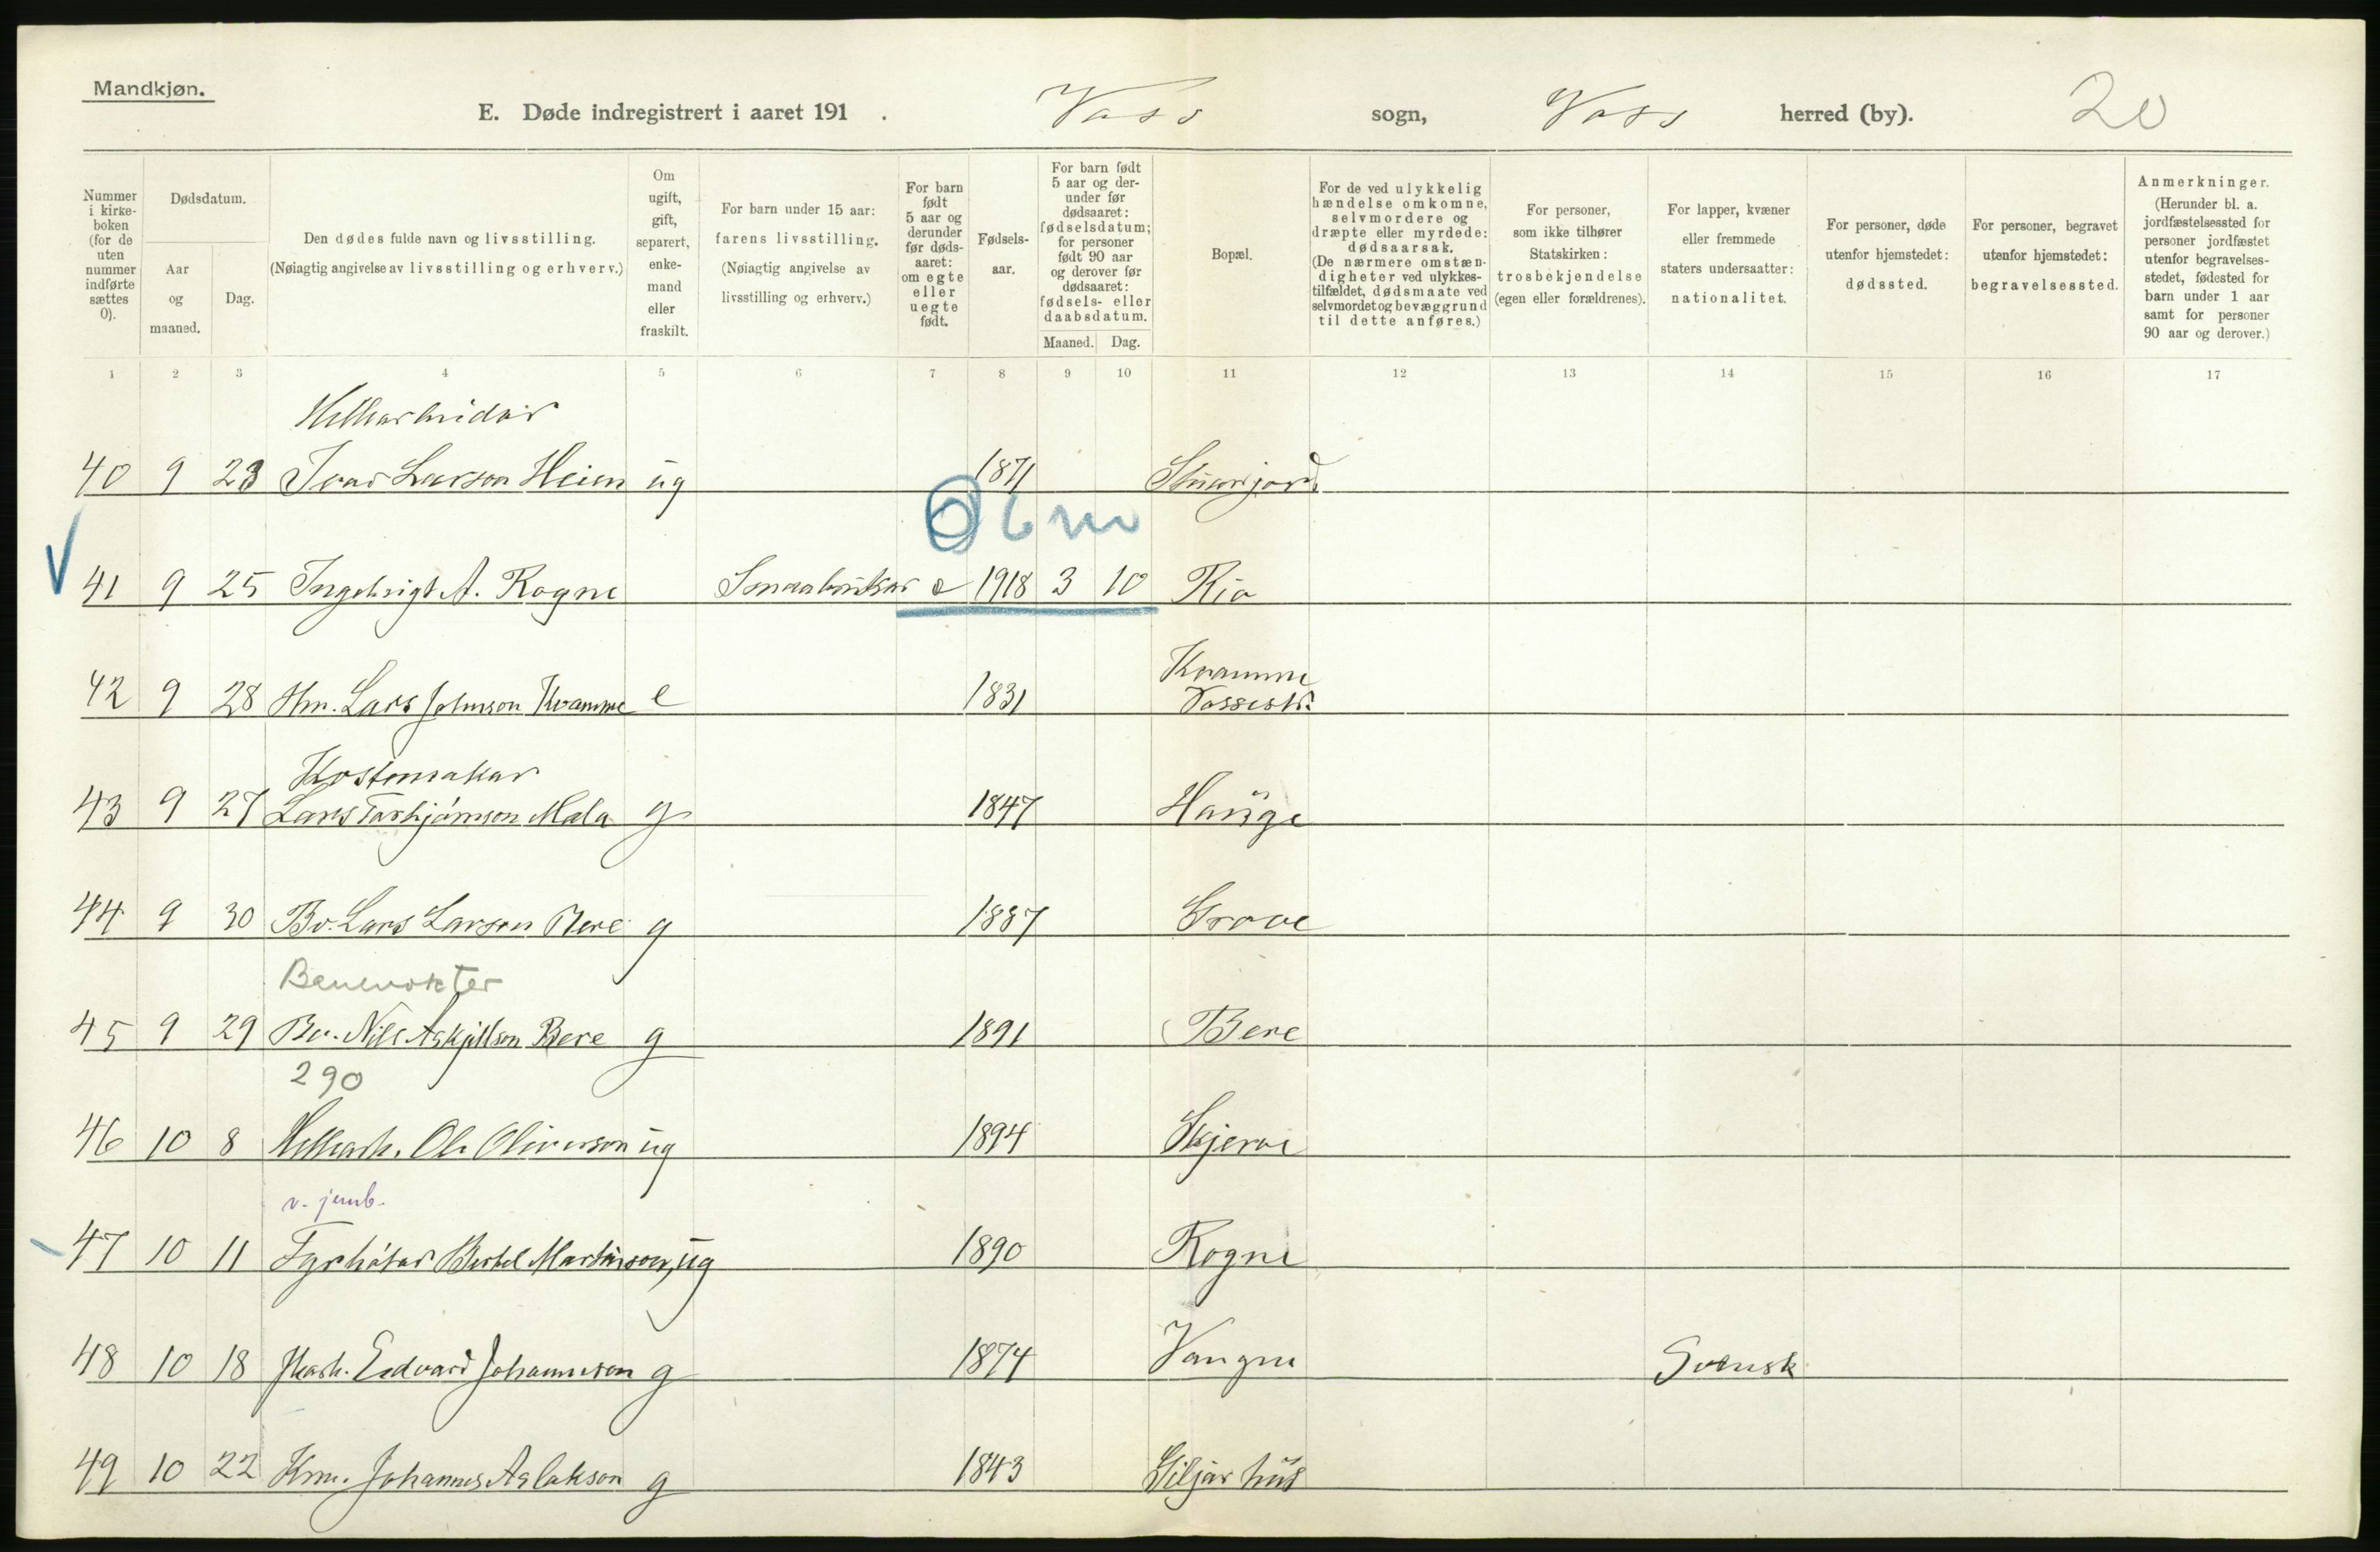 Mandkjøn.
E. Døde indregistrert i aaret 191 . Voss sogn, Voss herred (by). 20
Nummer i kirkeboken (for de uten nummer indførte sættes 0).
Dødsdatum.
Aar og maaned.
Dag.
Den dødes fulde navn og livsstilling.
(Nøiagtig angivelse av livsstilling og erhverv.)
Om ugift, gift, separert, enkemand eller fraskilt.
For barn under 15 aar: farens livsstilling. (Nøiagtig angivelse av livsstilling og erhverv.)
For barn født 5 aar og derunder før dødsaaret: om egte eller uegte født.
Fødselsaar.
For barn født 5 aar og derunder før dødsaaret: fødselsdatum; for personer født 90 aar og derover før dødsaaret: fødsels- eller daabsdatum.
Maaned. Dag.
Bopæl.
For de ved ulykkelig hændelse omkomne, selvmordere og dræpte eller myrdede: dødsaarsak. (De nærmere omstændigheter ved ulykkestilfældet, dødsmaate ved selvmordet og bevæggrund til dette anføres.)
For personer, som ikke tilhører Statskirken: trosbekjendelse (egen eller forældrenes).
For lapper, kvæner eller fremmede staters undersaatter: nationalitet.
For personer, døde utenfor hjemstedet: dødssted.
For personer, begravet utenfor hjemstedet: begravelsessted.
Anmerkninger. (Herunder bl. a. jordfæstelsessted for personer jordfæstet utenfor begravelsesstedet, fødested for barn under 1 aar samt for personer 90 aar og derover.)
1 2 3 4 5 6 7 8 9 10 11 12 13 14 15 16 17
40 9 23 Ivar Larson Heien ug 1871
0 6 m
41 9 25 Ingebrigt A. Rogne Smaabrukar e 1918 3 10 Rio
Kvamme
42 9 28 Hm. Lars Johnson Kvamme e 1831 Vossestr.
Kostemakar
43 9 27 Lars Mala g 1847 Hauge
44 9 30 Bv. Lars Larson Bere g 1887 Grove
Banevokter
45 9 29 Bv. Nils Askjellson Bere g 1891 Bere
290
46 10 8 Ole Oliverson ug 1894 Skjerve
v. jernb.
47 10 11 Fyrbøtar Bertel Martinson, ug 1890 Rogne
48 10 18 Edvard Johanneson g 1874 Vangen Svensk
49 10 22 Krm. Johannes Aslakson g 1843 Giljarhus